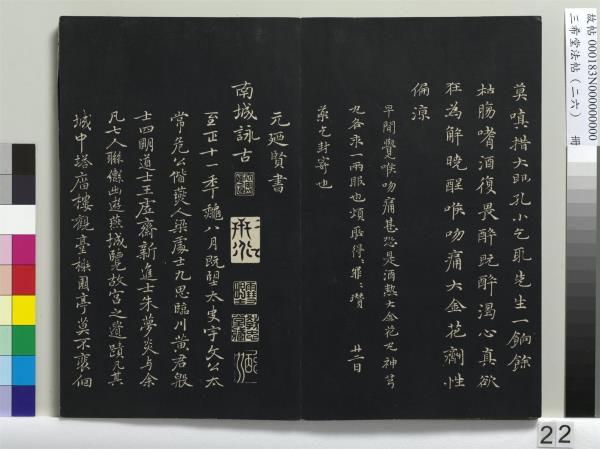 莫嗔措大眼孔小乞取先生一餉餘
枯腸嗜酒復畏醉既醉渴心真欲
狂為解曉酲喉吻痛大金花劑性
偏涼
早間覺喉吻痛甚恐是酒熱大金花丸神芎
丸各求一兩服也煩取得罪〻瓚 廿二日
藥乞封寄也
元廼賢書
南城詠古
至正十一年龝八月既望太史宇文公太
常危公偕燕人梁處士九思臨川黃君殷
士四明道士王虛齋新進士朱夢炎與余
凡七人聯轡出遊燕城覽故宮之遺蹟凡其
城中塔廟樓觀臺榭園亭莫不裵徊
故帖 000183N000000000
三希堂法帖（二六） 冊
22